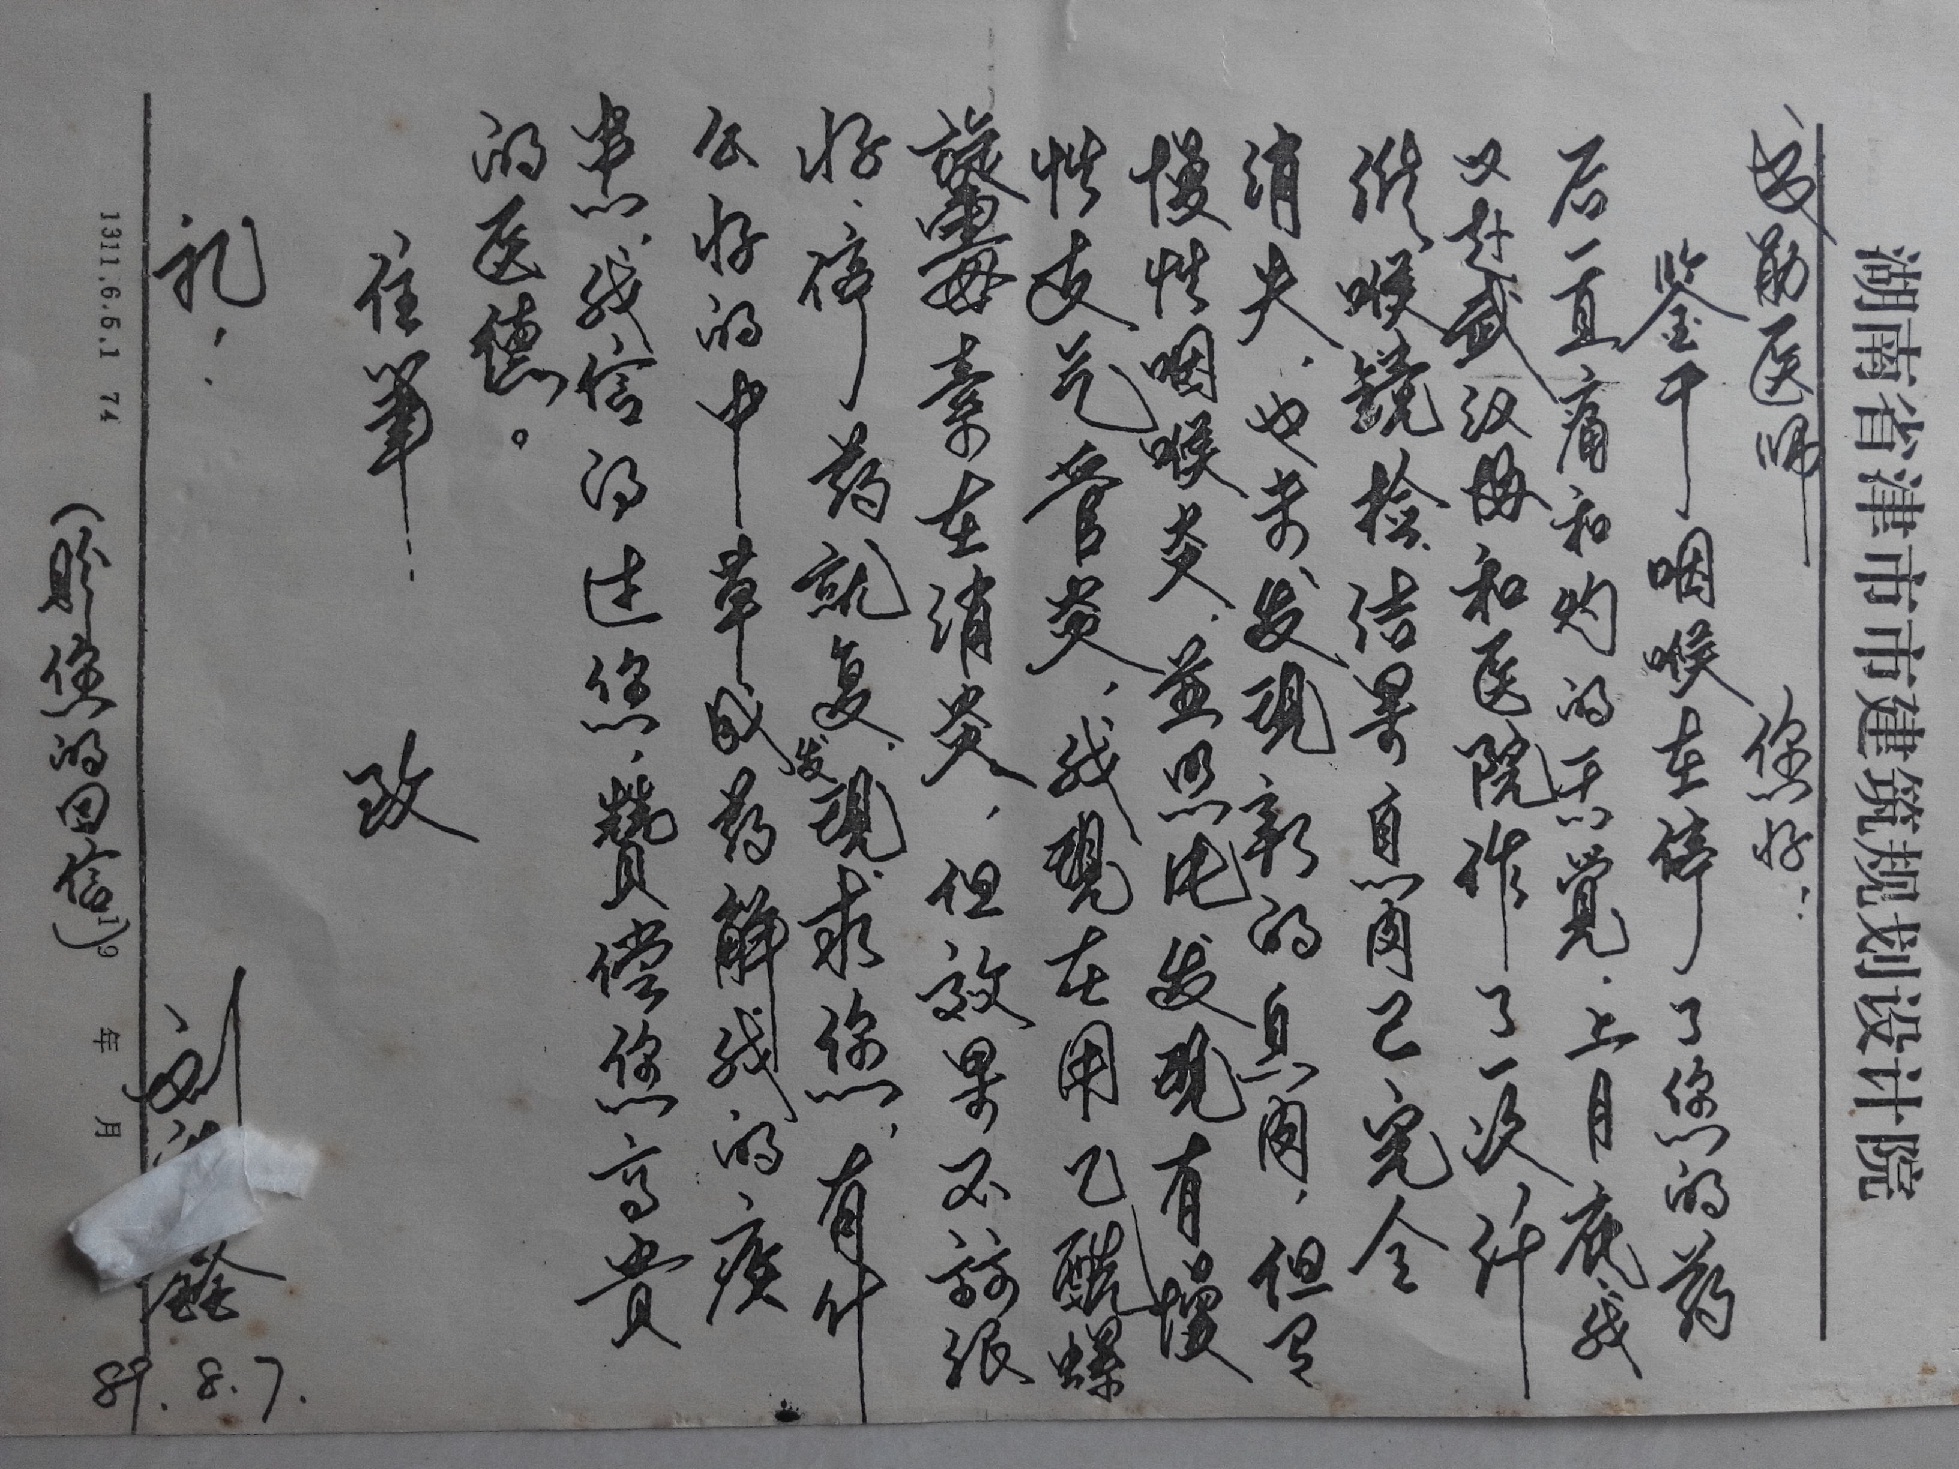 湖南省津市市建筑规划设计院
医师 您好：
鉴于咽喉在停了您的药
后一直痛和灼的感觉，上月底，我
又赴武汉同和医院作了一次纤
维喉镜检，结果息肉已完全
消失，也未发现新的息肉，但是
慢性咽喉炎，并照片发现有慢
性支气管炎，我现在用乙酰螺
旋霉素在消炎，但效果不该很
好，停药就复发，现求您，有什
么好的中草成药解我的疾
患，我信的过您，赞偿您高贵
的医德。
住笔
致
礼！
刘 鑫
89.8.7.
(盼您的回信)
1311.6.6.1 74
19 年 月